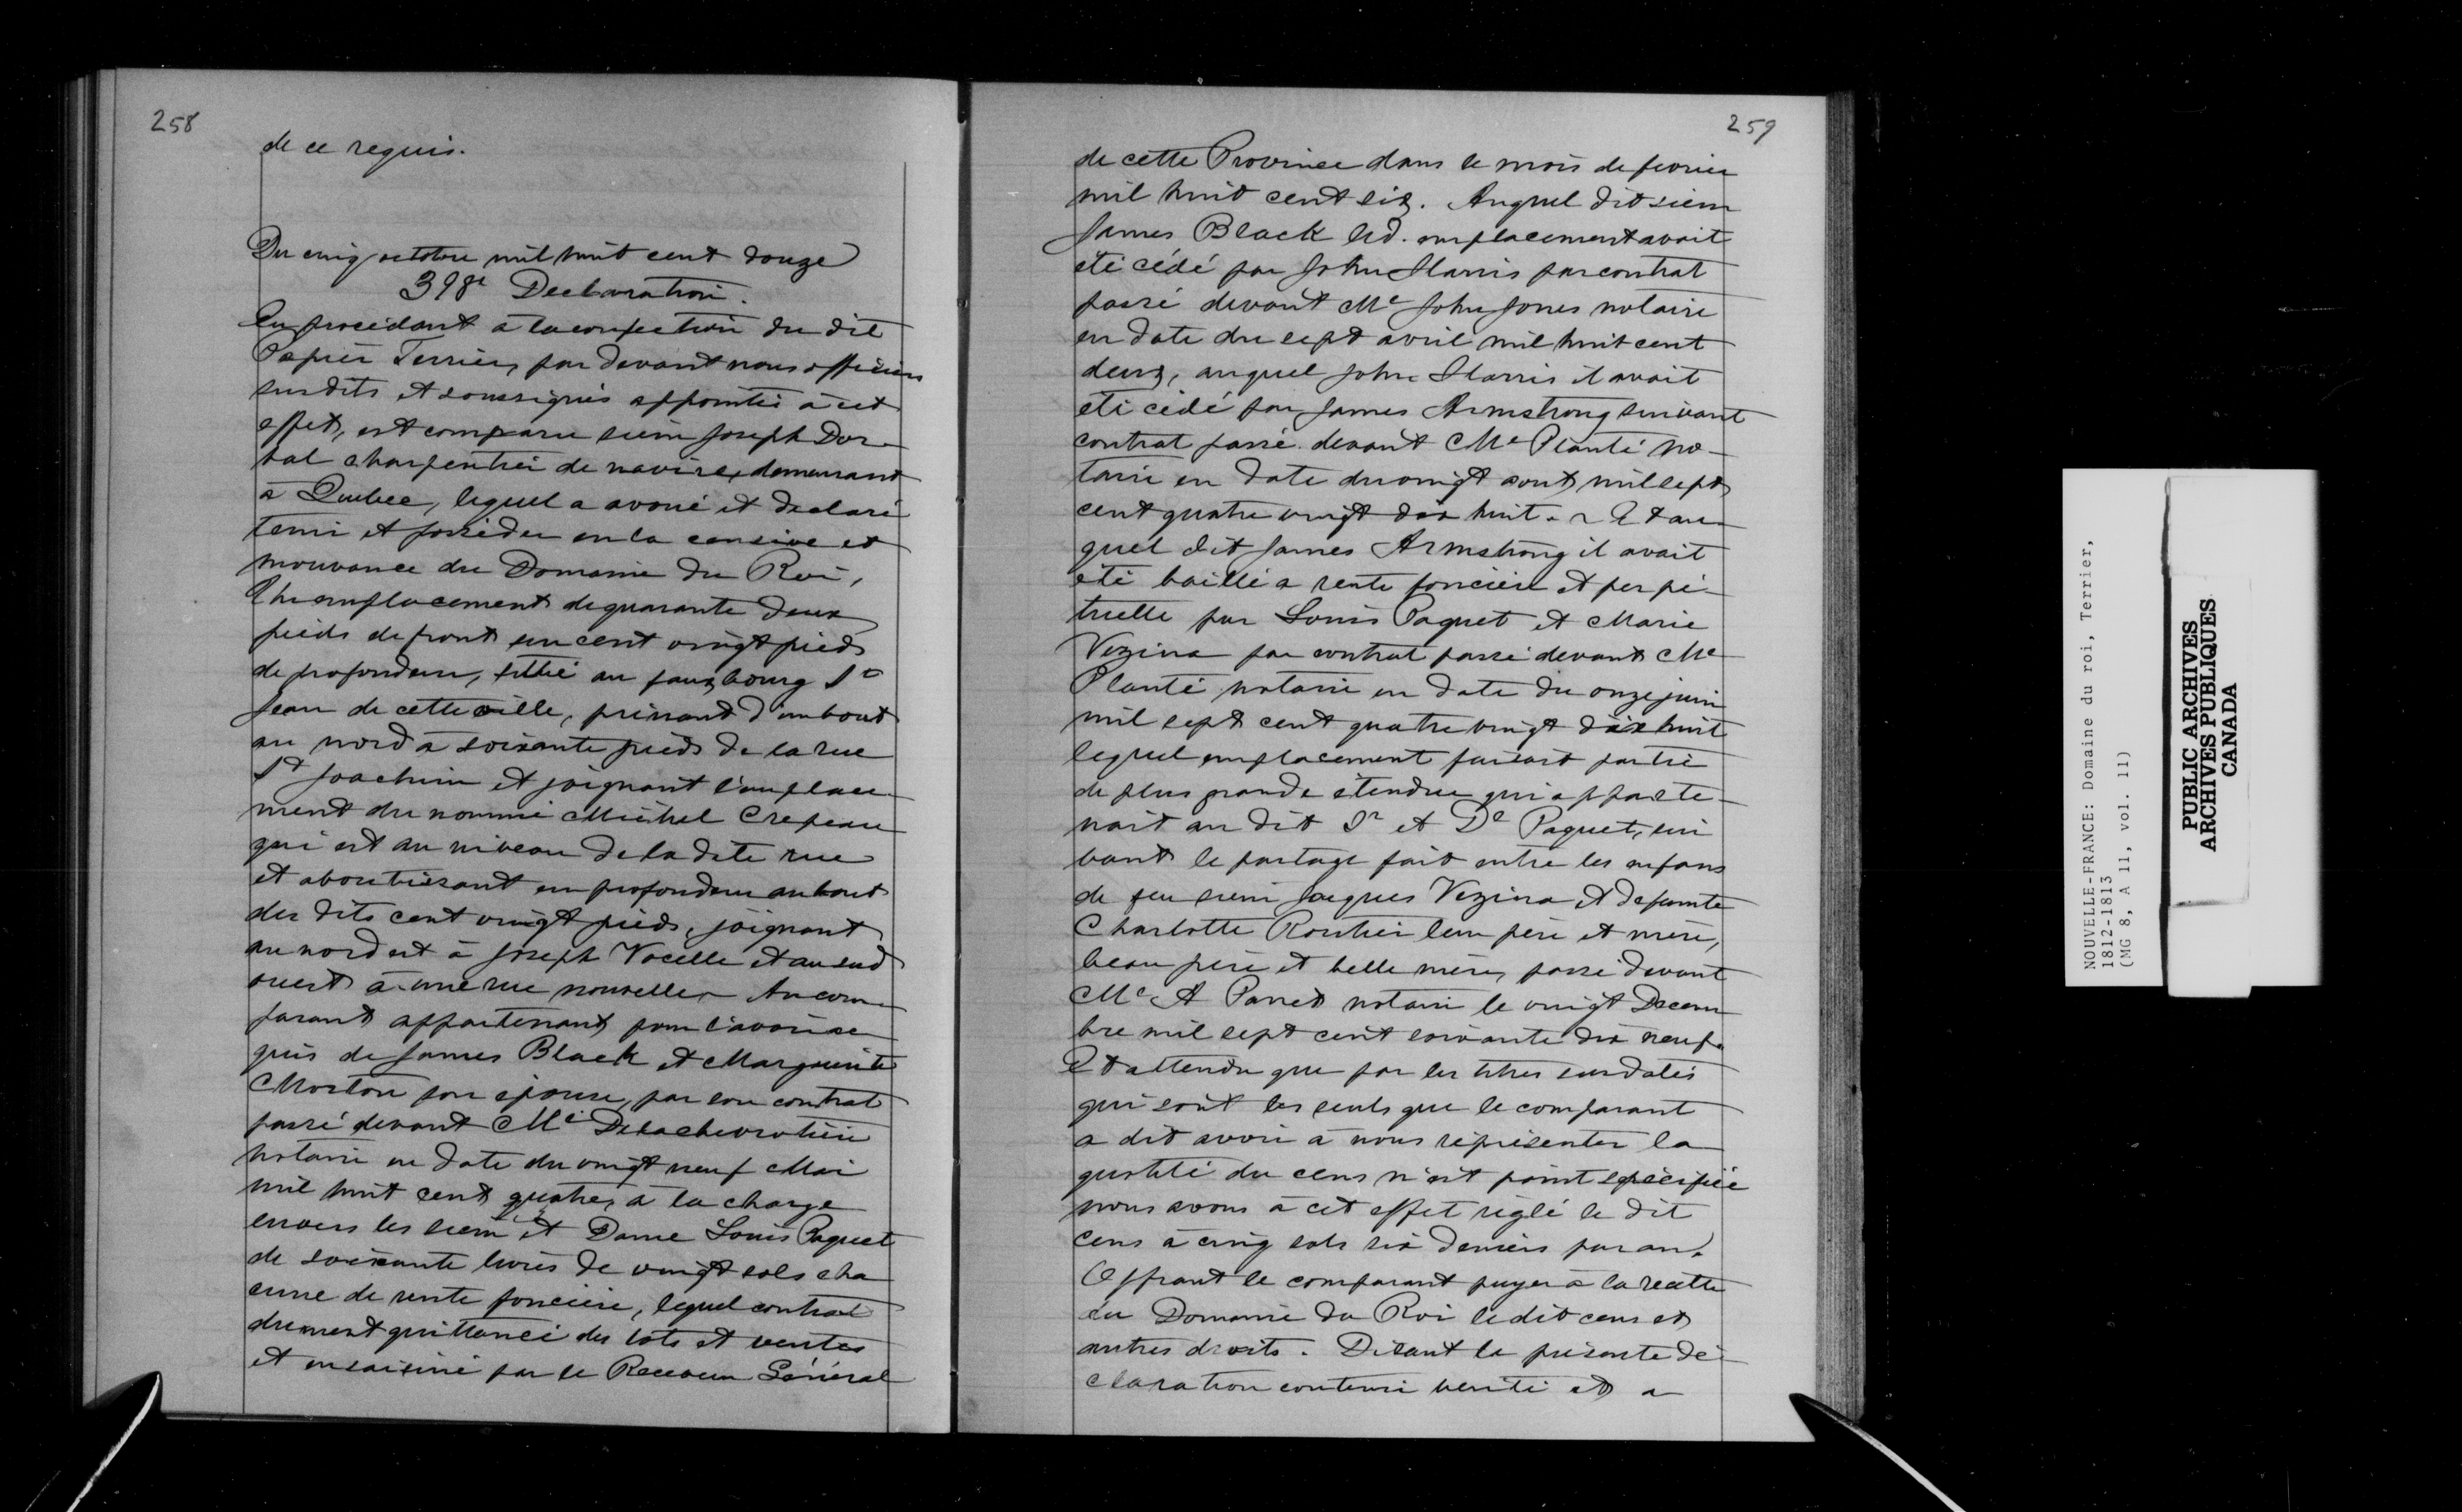 258
de ce requis.
Du cinq octobre mil huit cent douze
398e Declaration.
En procedant à la confection du dit
Papier Terrier, par devant nous officiers
susdits et soussignés appointés à cet
effet, est comparu sieur Joseph Dor-
val charpentier de navire, demeurant
à Quebec, lequel a avoué et declaré
tenir et posséder en la censive et
mouvance du Domaine du Roi,
Un emplacement de quarante deux
pieds de front sur cent vingt pieds
de profondeur, situé au fauxbourg St
Jean de cette ville, prenant d'un bout
au nord à soixante pieds de la rue
St Joachim et joignant l'emplace-
ment du nommé Michel Crepeau
qui est au niveau de la dite rue
et aboutissant en profondeur au bout
des dits cent vingt pieds, joignant
au nord est à Joseph Vocelle et au sud
ouest à une rue nouvelle. Au com-
parant appartenant pour l'avoir ac
quis de James Black et Marguerite
Morton son epouse, par son contrat
passé devant Me Delachevrotière
notaire en date du vingt neuf Mai
mil huit cent quatre, à la charge
envers les sieur et Dame Louis Paquet
de soixante livres de vingt sols cha
cune de rente foncière, lequel contrat
duement quittancé des lots et ventes
et ensaisiné par le Receveur Général
259
de cette Province dans le mois de fevrier
mil huit cent six. Auquel dit sieur
James Black led. emplacement avait
été cédé par John Harris par contrat
passé devant Me John Jones notaire
en date du sept avril mil huit cent
deux, auquel John Harris il avait
été cédé par James Armstrong suivant
contrat passé devant Me Planté no-
taire en date du vingt aout mil sept
cent quatre vingt dix huit. Et au
quel dit James Armstrong il avait
été baillé a rente foncière et perpé-
tuelle par Louis Paquet et Marie
Vezina par contrat passé devant Me
Planté notaire en date du onze juin
mil sept cent quatre vingt dix huit
lequel emplacement faisait partie
de plus grande étendue qui apparte-
nait au dit Sr et De Paquet, sui
vant le partage fait entre les enfans
de feu sieur Jacques Vezina et defunte
Charlotte Routier leur père et mère,
beau père et belle mère, passé devant
Me A Panet notaire le vingt Decem
bre mil sept cent soixante dix neuf.
Et attendu que par les titres susdatés
qui sont les seuls que le comparant
a dit avoir à nous répresenter la
quotité du cens n'est point spécifiée
nous avons à cet effet réglé le dit
cens à cinq sols six deniers par an.
Offrant le comparant payer à la recette
du Domaine du Roi le dit cens et
autres droits. Disant la présente dé-
claration contenir verité et a
NOUVELLE-FRANCE: Domaine du roi, Terrier,
1812-1813
(MG 8, A 11, vol. 11)
PUBLIC ARCHIVES
ARCHIVES PUBLIQUES
CANADA